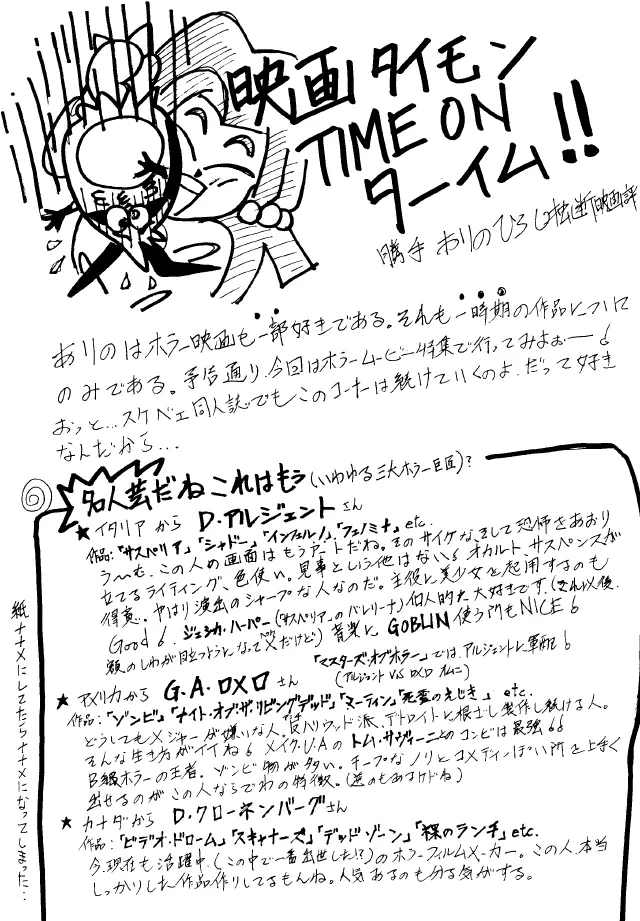 映画タイモン
TIME ON
タイーム!!
勝手 ありのひろし 独断映画評
ありのはホラー映画も一部好きである。それも一時期の作品について
のみである。予告通り、今回はホラームービー特集で行ってみよぉー
おっと…スケベェ同人誌でもこのコーナーは続けていくのよ。だって好き
なんだから…
名人芸だねこれはもう(いわゆる三大ホラー巨匠)?
★イタリアから D・アルジェントさん
作品:「サスペリア」「シャドー」「インフェルノ」「フェノミナ」etc.
う〜む、この人の画面はもうアートだね。そのサイケな、そして恐怖をあおり
立てるライティング、色使い。見事という他はない。オカルト、サスペンスが
得意。やはり演出のシャープな人なのだ。主役に美少女を起用するのも
Good ジェシカ・ハーパー(「サスペリア」のバレリーナ)個人的に大好きです。(それ以後、
額のしわが目立つようになってダメだけど)音楽に GOBLIN 使う所も NICE
「マスターズ・オブ・ホラー」では、アルジェントに軍配
(アルジェント VS ロメロ オムニ)
★アメリカから G.A.ロメロ さん
作品:「ゾンビ」「ナイト・オブ・ザ・リビングデッド」「マーティン」「死霊のえじき」 etc.
どうしてもメジャーが嫌いな人。反ハリウッド派、デトロイトに根ざし製作し続ける人。
そんな生き方がイイね メイク・U.Aのトム・サヴィーニとのコンビは最強
B級ホラーの王者。ゾンビ物が多い。チープなノリとコメディっぽい所を上手く
出せるのがこの人ならでわの特徴。(逆のもあるけどね)
★カナダから D.クローネンバーグさん
作品:「ビデオ・ドローム」「スキャナーズ」「デッドゾーン」「裸のランチ」etc.
今、現在も活躍中。(この中で一番出世した!?)のホラーフィルムメーカー。この人、本当
しっかりした作品作りしてるもんね。人気あるのも分る気がする。
紙ナナメにしてたらナナメになってしまった…